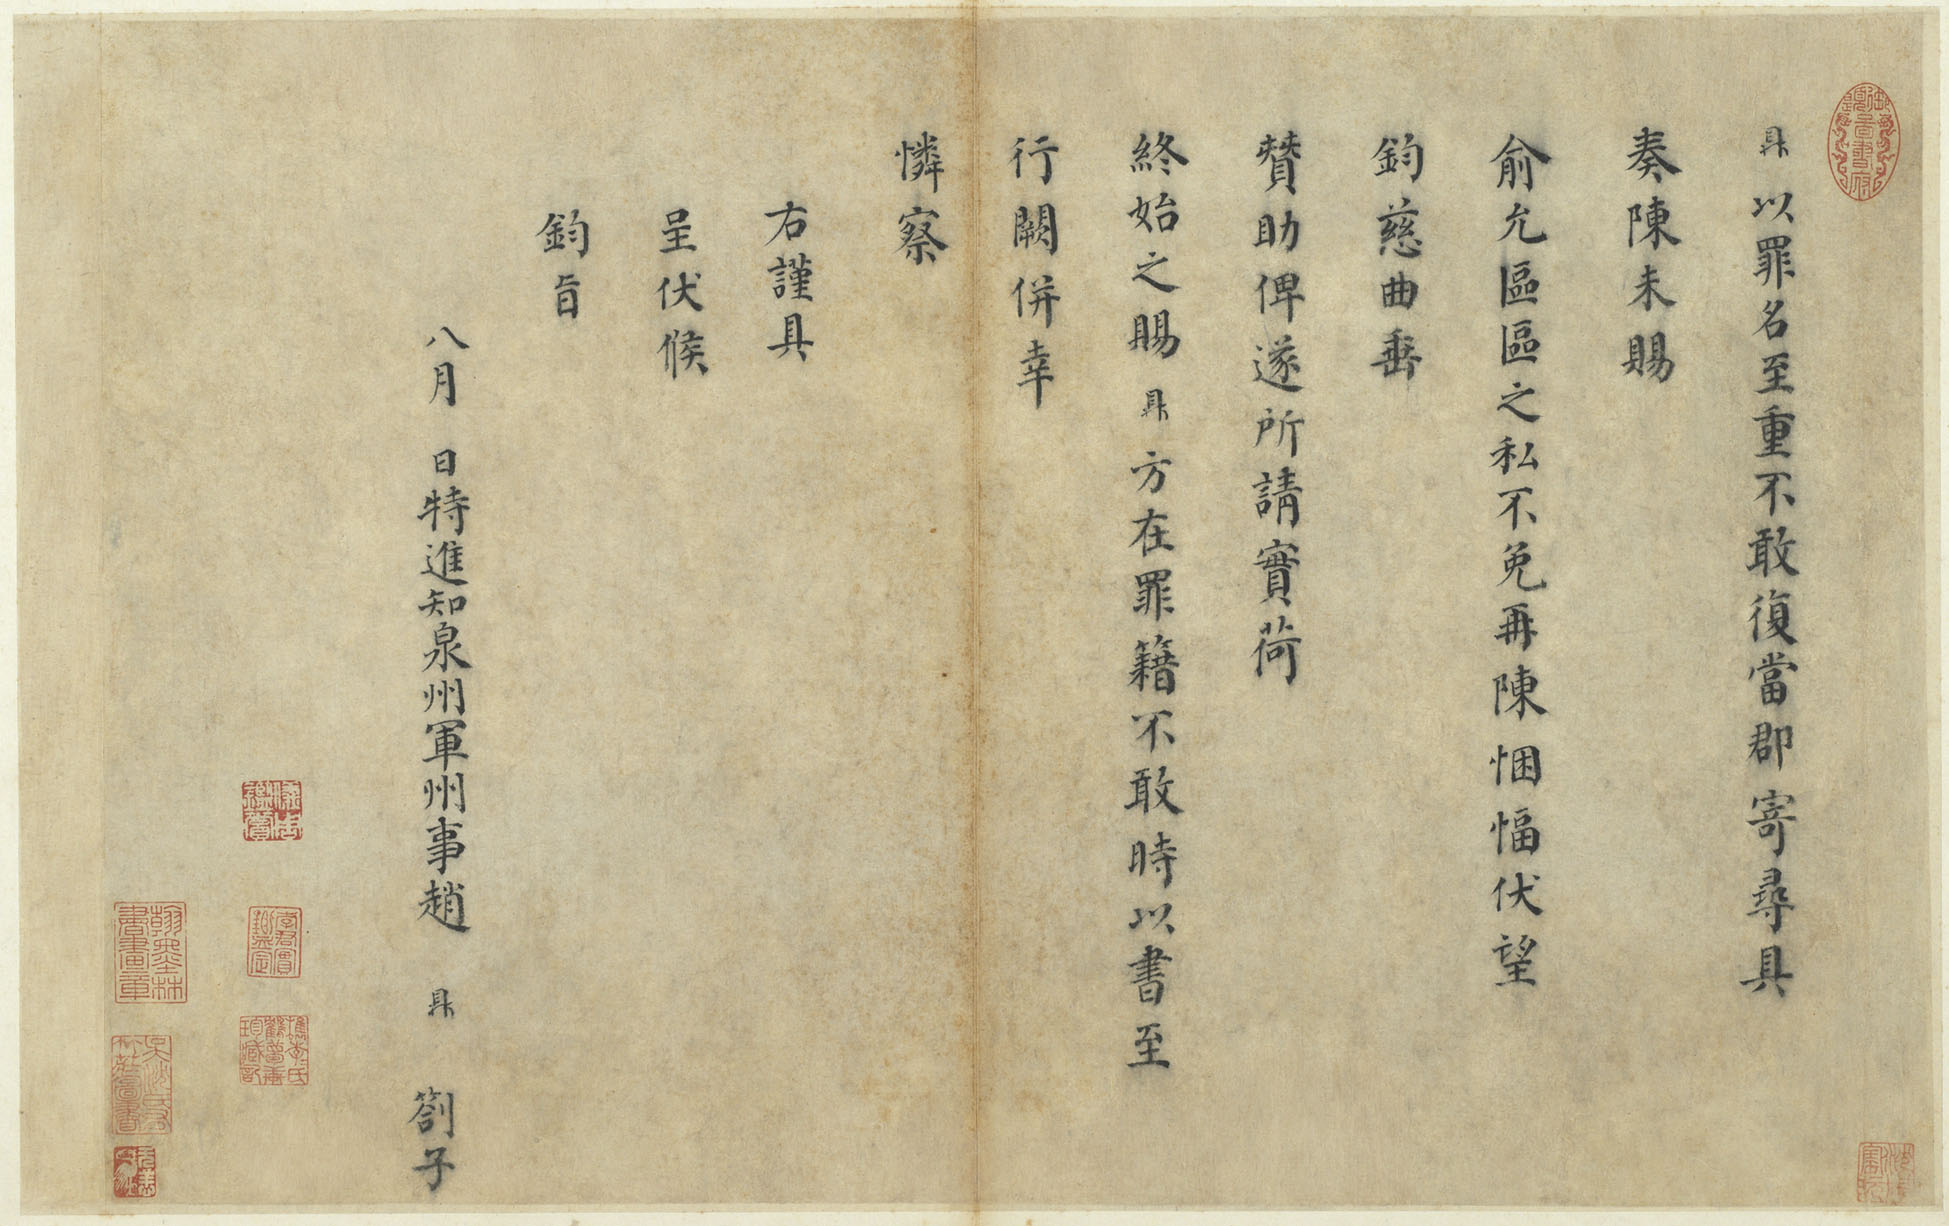 鼎以罪名至重不敢復當郡寄尋具
奏陳未賜
俞允區區之私不免再陳悃愊伏望
鈞慈曲垂
贊助俾遂所請實荷
終始之賜鼎方在罪籍不敢時以書至
行闕併幸
憐察
右謹具
呈伏候
鈞旨
八月 日特進知泉州軍州事趙 鼎 劄子
翰墨林書畫章